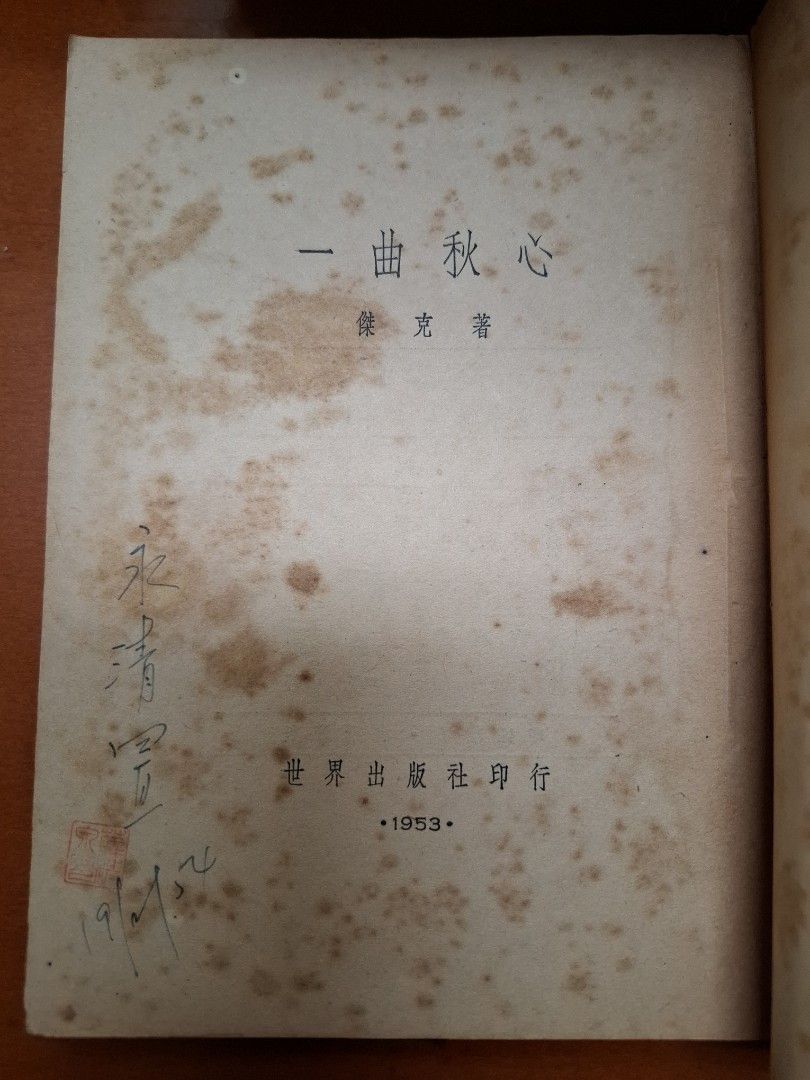 一曲秋心
傑克著
世界出版社印行
·1953·
永清置